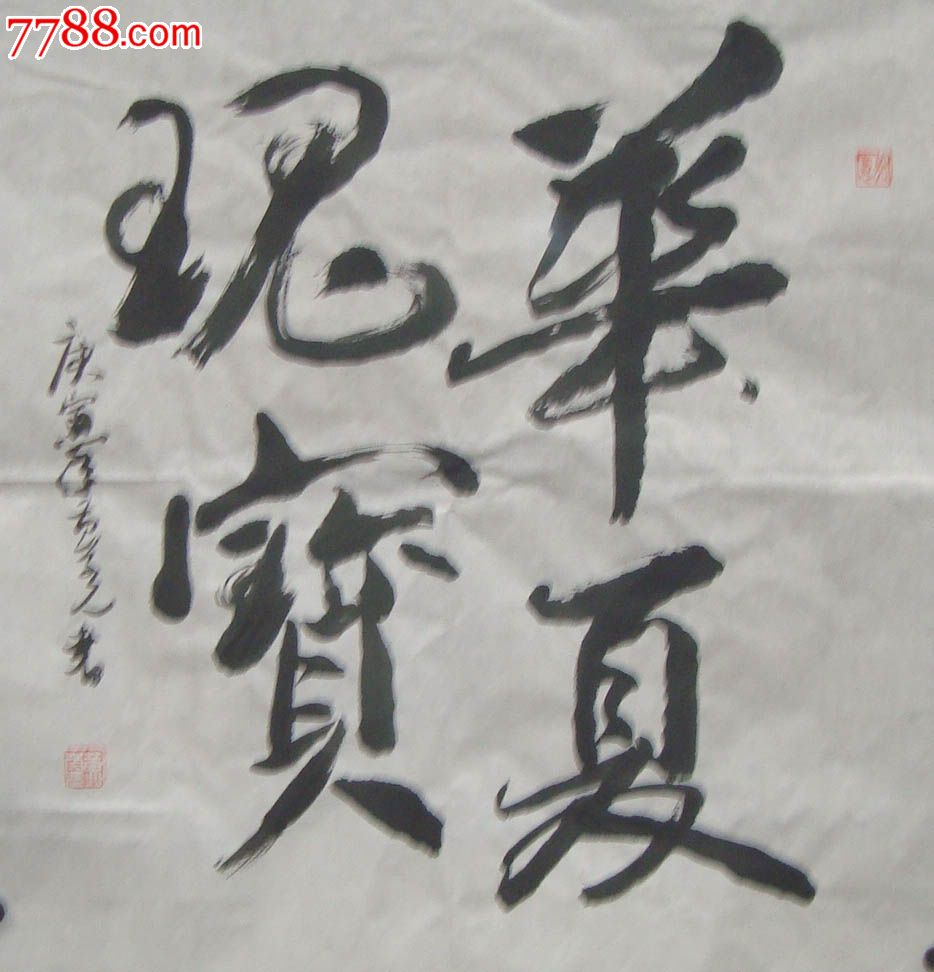 7788.com
華夏
瑰寶
庚寅年
书